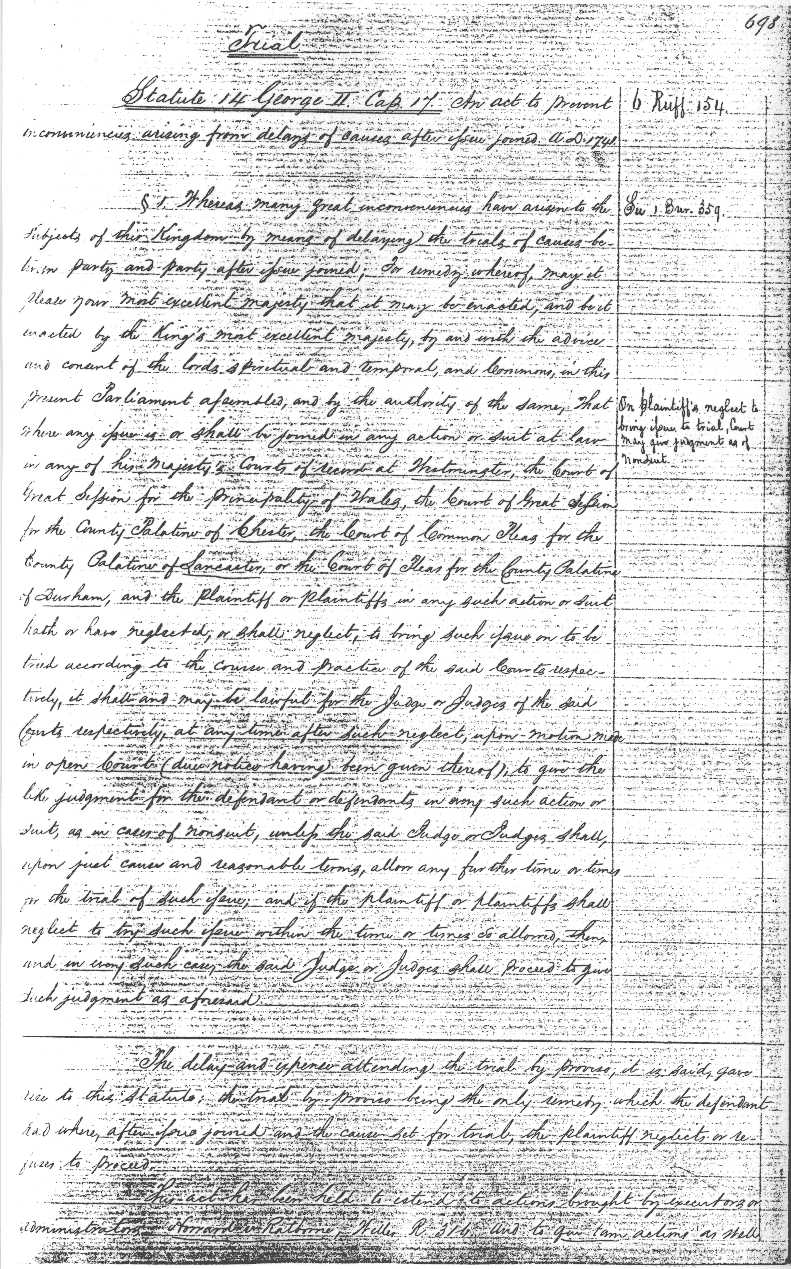 698
Trial
Statute 14 George II. Cap. 17. An act to prevent
inconveniencies arising from delays of causes after issue joined. A.D. 1741.
6 Ruff. 154.
§ 1. Whereas many great inconveniencies have arisen to the
See 1 Bur. 359.
subjects of this Kingdom by means of delaying the trials of causes be-
tween party and party after issue joined; For remedy whereof, may it
please your most excellent majesty that it may be enacted, and be it
enacted by the King's most excellent majesty, by and with the advice
and consent of the lords spiritual and temporal, and Commons, in this
present Parliament assembled, and by the authority of the same, That
where any issue is or shall be joined in any action or suit at law
in any of his Majesty's Courts of record at Westminster, the Court of
Great Session for the Principality of Wales, the Court of Great Session
for the County Palatine of Chester, the Court of Common Pleas for the
County Palatine of Lancaster, or the Court of Pleas for the County Palatine
of Durham, and the plaintiff or plaintiffs in any such action or suit
hath or have neglected, or shall neglect, to bring such issue on to be
tried according to the course and practice of the said Courts respec-
tively, it shall and may be lawful for the Judge or Judges of the said
Courts respectively, at any time after such neglect, upon motion made
in open Court (due notice having been given thereof), to give the
like judgment for the defendant or defendants in any such action or
suit, as in cases of nonsuit, unless the said Judge or Judges shall,
upon just cause and reasonable terms, allow any further time or times
for the trial of such issue; and if the plaintiff or plaintiffs shall
neglect to try such issue within the time or times so allowed, then,
and in every such case, the said Judge or Judges shall proceed to give
such judgment as aforesaid.
On plaintiff's neglect to
bring issue to trial, Court
may give judgment as of
nonsuit.
The delay and expense attending the trial by proviso, it is said, gave
rise to this statute; the trial by proviso being the only remedy which the defendant
had where, after issue joined and the cause set for trial, the plaintiff neglects or re-
fuses to proceed.
The act has been held to extend to actions brought by executors or
administrators. Howard v. Willes R. 316. And to qui tam actions as well